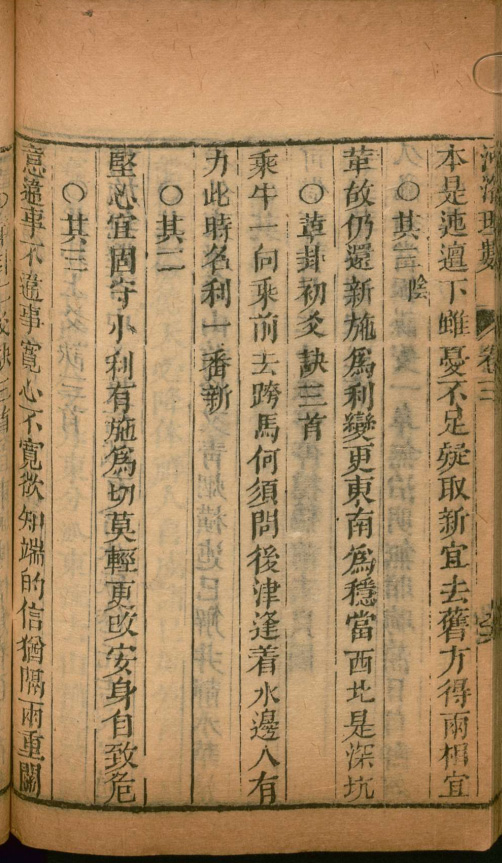 河洛理數 卷三
本是迍邅下雖憂不足疑取新宜去舊方得兩相宜
○其三陰
革故仍還新施爲利變更東南爲穩當西北是深坑
○革卦初爻訣三首
乘牛一向乘前去跨馬何須問後津逢着水邊人有
力此時名利一番新
○其二
堅心宜固守小利有施爲切莫輕更改安身自致危
○其三
意違事不違事寬心不寬欲知端的信猶隔兩重關